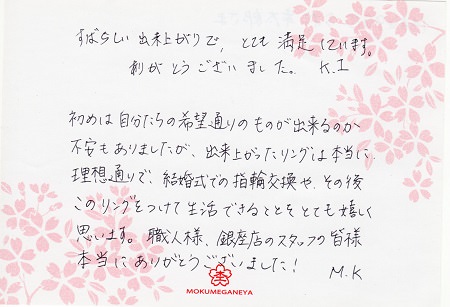 すばらしい出来上がりで、とても満足しています。
ありがとうございました。 K.I
初めは自分たちの希望通りのものが出来るのか
不安もありましたが、出来上がったリングは本当に
理想通りで、結婚式での指輪交換や、その後
このリングをつけて生活できることをとても嬉しく
思います。職人様、銀座店のスタッフの皆様
本当にありがとうございました！
M.K
MOKUMEGANEYA